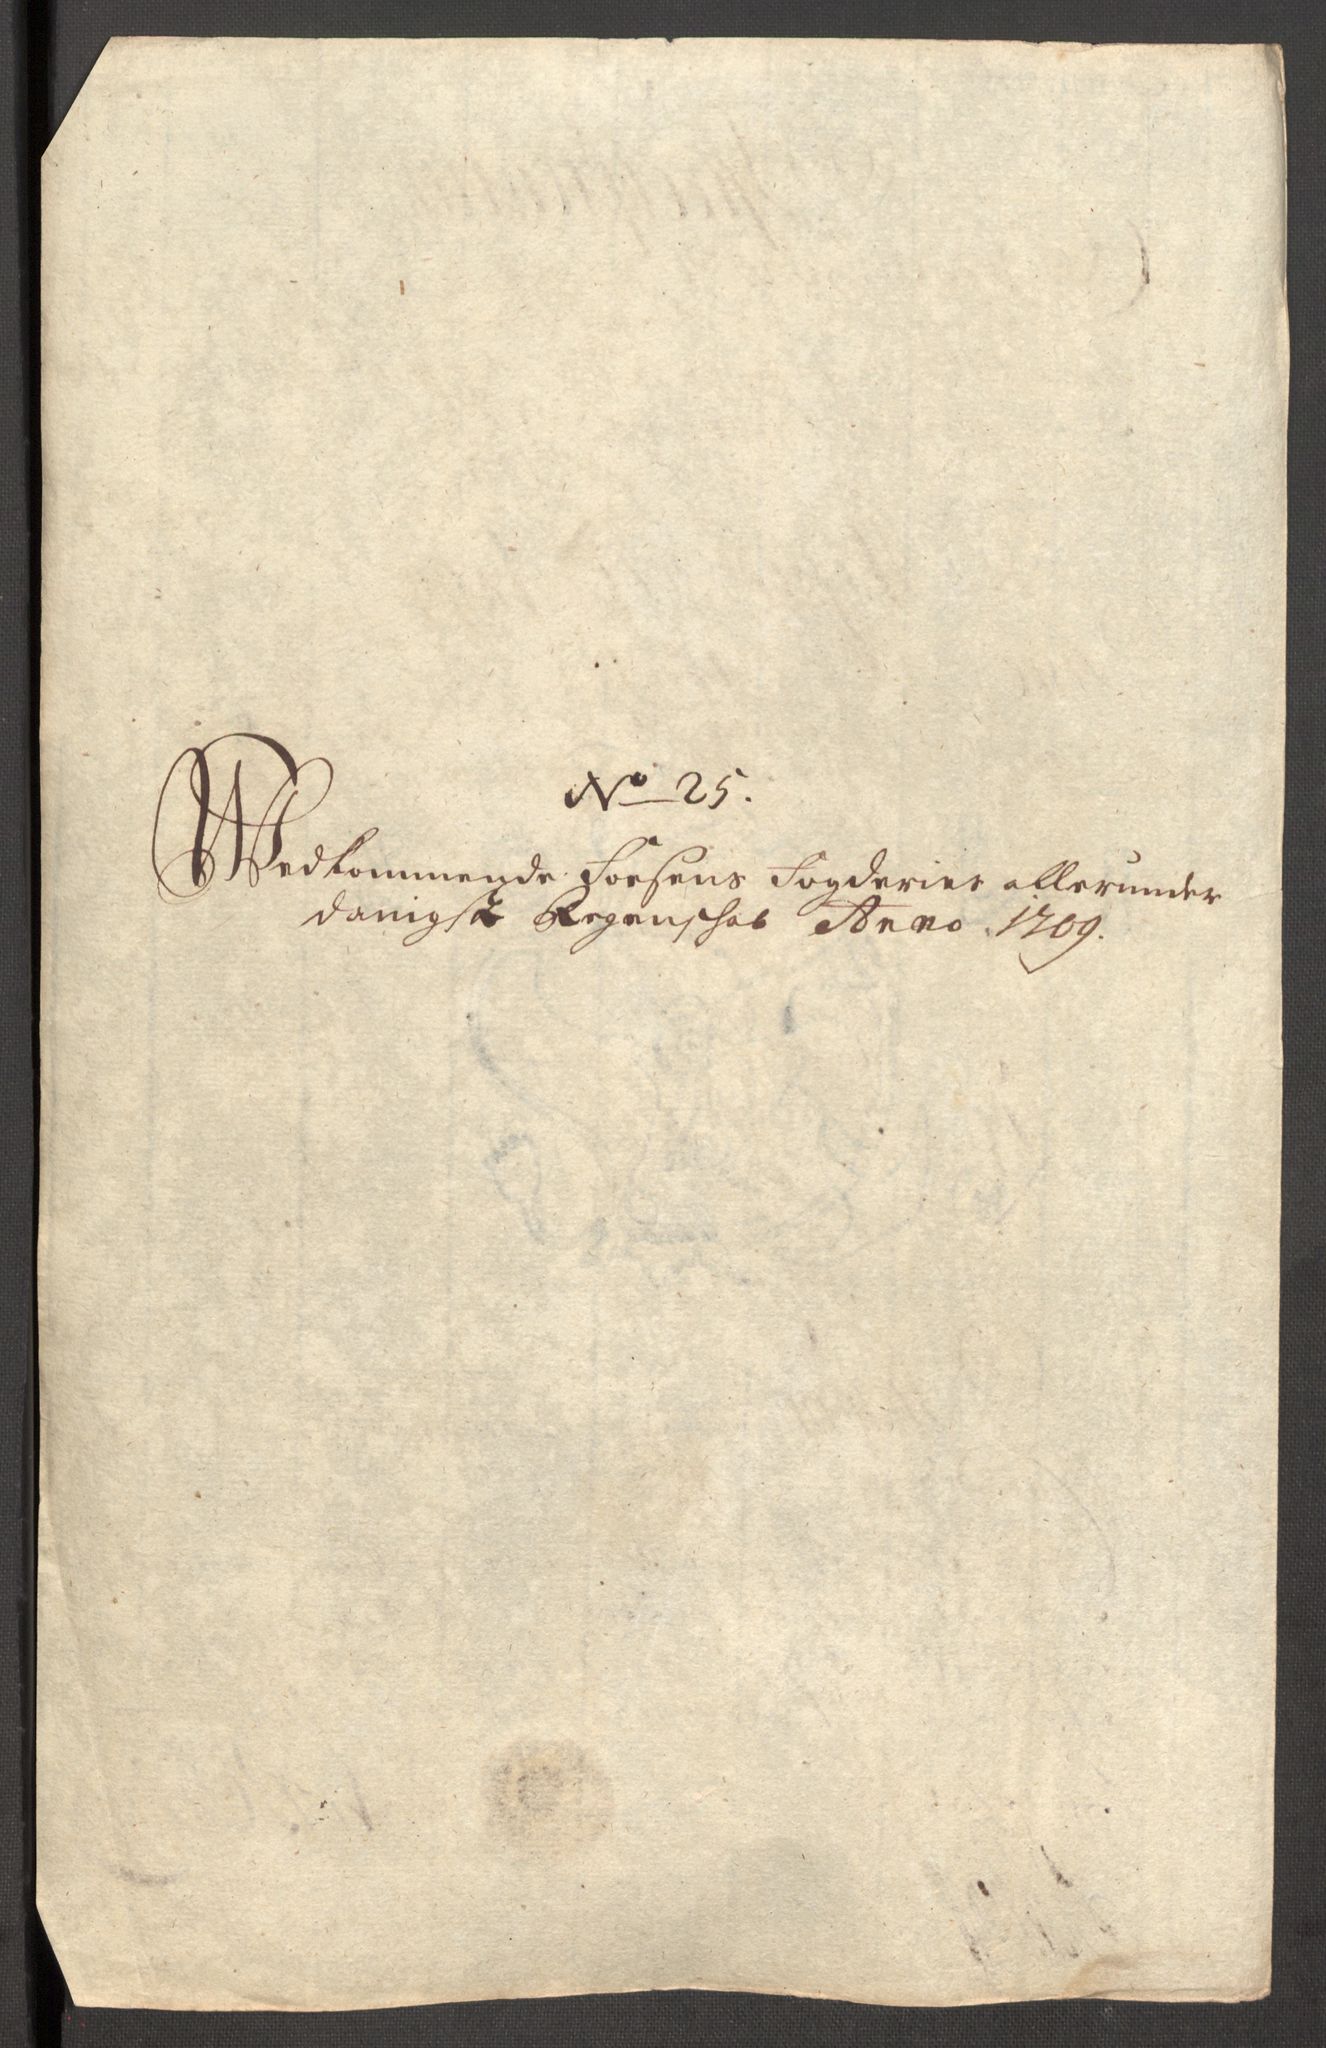 No 25.
Wedkommende Foesens Fogderies allerunder
danigst Regenschab Anno 1709.